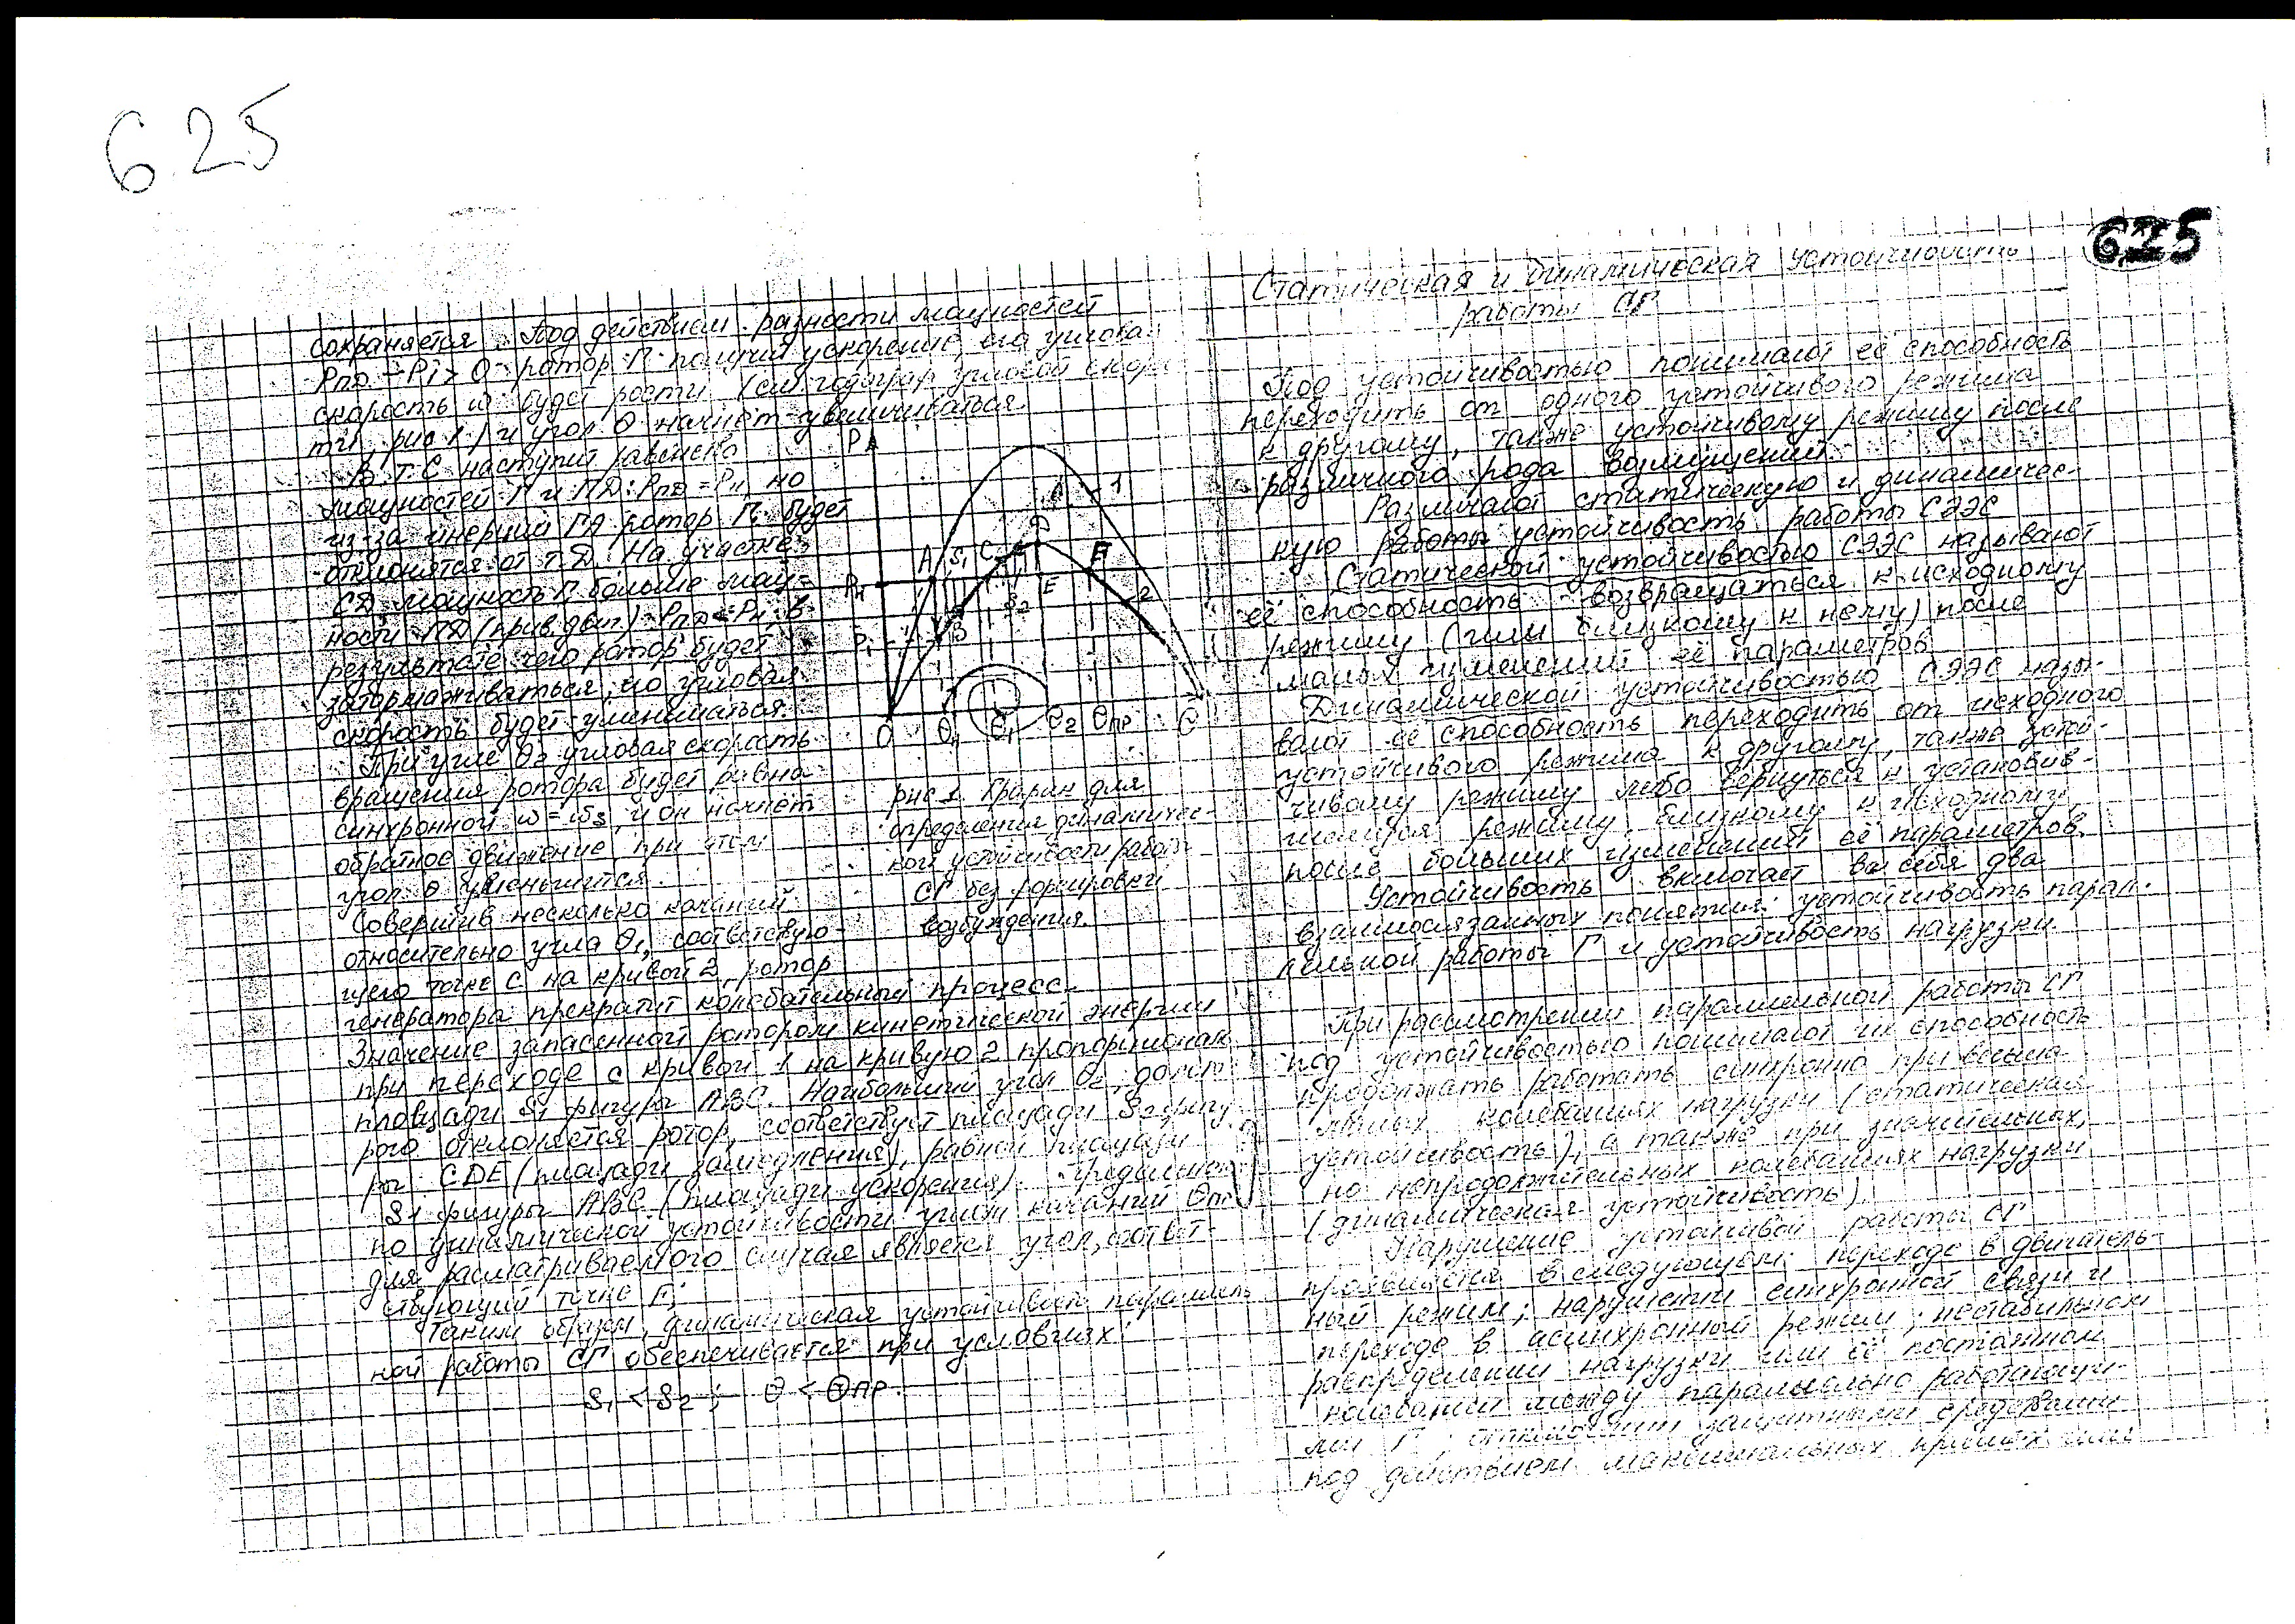 6.25
сохраняется. Под действием разности мощностей
Pпд - P1 > 0 ротор Г получит ускорение, его угловая
скорость ω будет рости (см. годограф угловой скоро
сти, рис 1.) и угол θ начнёт увеличиваться.
В т. С наступит равенство
мощностей Г и ПД: Pпд = Pн, но
из-за инерции ГА ротор Г будет
отклонятся от т. Д. На участке
СД мощность Г больше мощ-
ности ПД (прив. двиг.): Pпд < Pн, в
результате чего ротор будет
затормаживаться, но угловая
скорость будет уменьшаться.
При угле θ2 угловая скорость
вращения ротора будет равна
синхронной ω = ωs, и он начнёт
обратное движение, при этом
угол θ уменьшится.
Совершив несколько качаний
относительно угла θ1, соответствую-
щего точке С на кривой 2, ротор
генератора прекратит колебательный процесс.
Значение запасенной ротором кинетической энергии
при переходе с кривой 1 на кривую 2 пропорционал
площади S1 фигуры АВС. Наибольший угол θ2, до кот
рого отклоняется ротор, соответствует площади S2 фигу
ры CDE (площади замедления), равной площади
S1 фигуры АВС (площади ускорения). Предельном
по динамической устойчивости углом качаний θпр
для расматриваемого случая является угол, соответ-
ствующий точке F.
Таким образом, динамическая устойчивость параллель
ной работы СГ обеспечивается при условиях:
S1 < S2 ; θ < θпр.
P
A S1 C D 1
Pн E F
P1 B S2 2
0 θн θ1 θ2 θпр θ
рис 1. График для
определения динамичес-
кой устойчивости работ
СГ без форсировки
возбуждения.
625
Статическая и динамическая устойчивость
работы СГ
Под устойчивостью понимают её способность
переходить от одного устойчивого режима
к другому, также устойчивому режиму после
различного рода возмущений.
Различают статическую и динамичес-
кую работы устойчивость работы СЭЭС
Статической устойчивостью СЭЭС называют
её способность возвращаться к исходному
режиму (или близкому к нему) после
малых изменений её параметров
Динамической устойчивостью СЭЭС назы-
вают её способность переходить от исходного
устойчивого режима к другому, также устой-
чивому режиму либо вернуться к установив-
шемуся режиму, близкому к исходному,
после больших изменений её параметров.
Устойчивость включает в себя два
взаимосвязанных понятия: устойчивость парал-
лельной работы Г и устойчивость нагрузки.
При рассмотрении параллельной работы СГ
под устойчивостью понимают их способность
продолжать работать синхронно при весьма
малых колебаниях нагрузки (статическая
устойчивость), а также при значительных,
но непродолжительных колебаниях нагрузки
(динамическая устойчивость).
Нарушение устойчивой работы СГ
проявляется в следующем: переходе в двигатель-
ный режим; нарушении синхронной связи и
переходе в асинхронный режим; нестабильном
распределении нагрузки или её постоянном
колебании между параллельно работающи-
ми Г; отключении защитными средствами
под действием максимальных